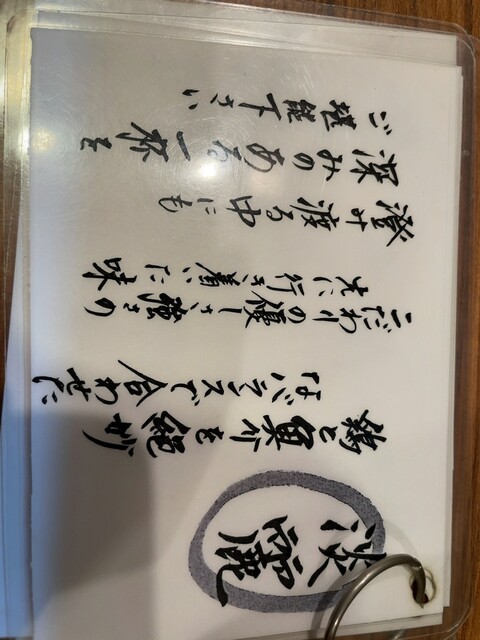 淡麗
鶏と魚介を絶妙
なバランスで合わせた
こだわりの優しさ、強さの
先に行き着いた味
澄み渡る中にも
深みのある一杯を
ご堪能下さい